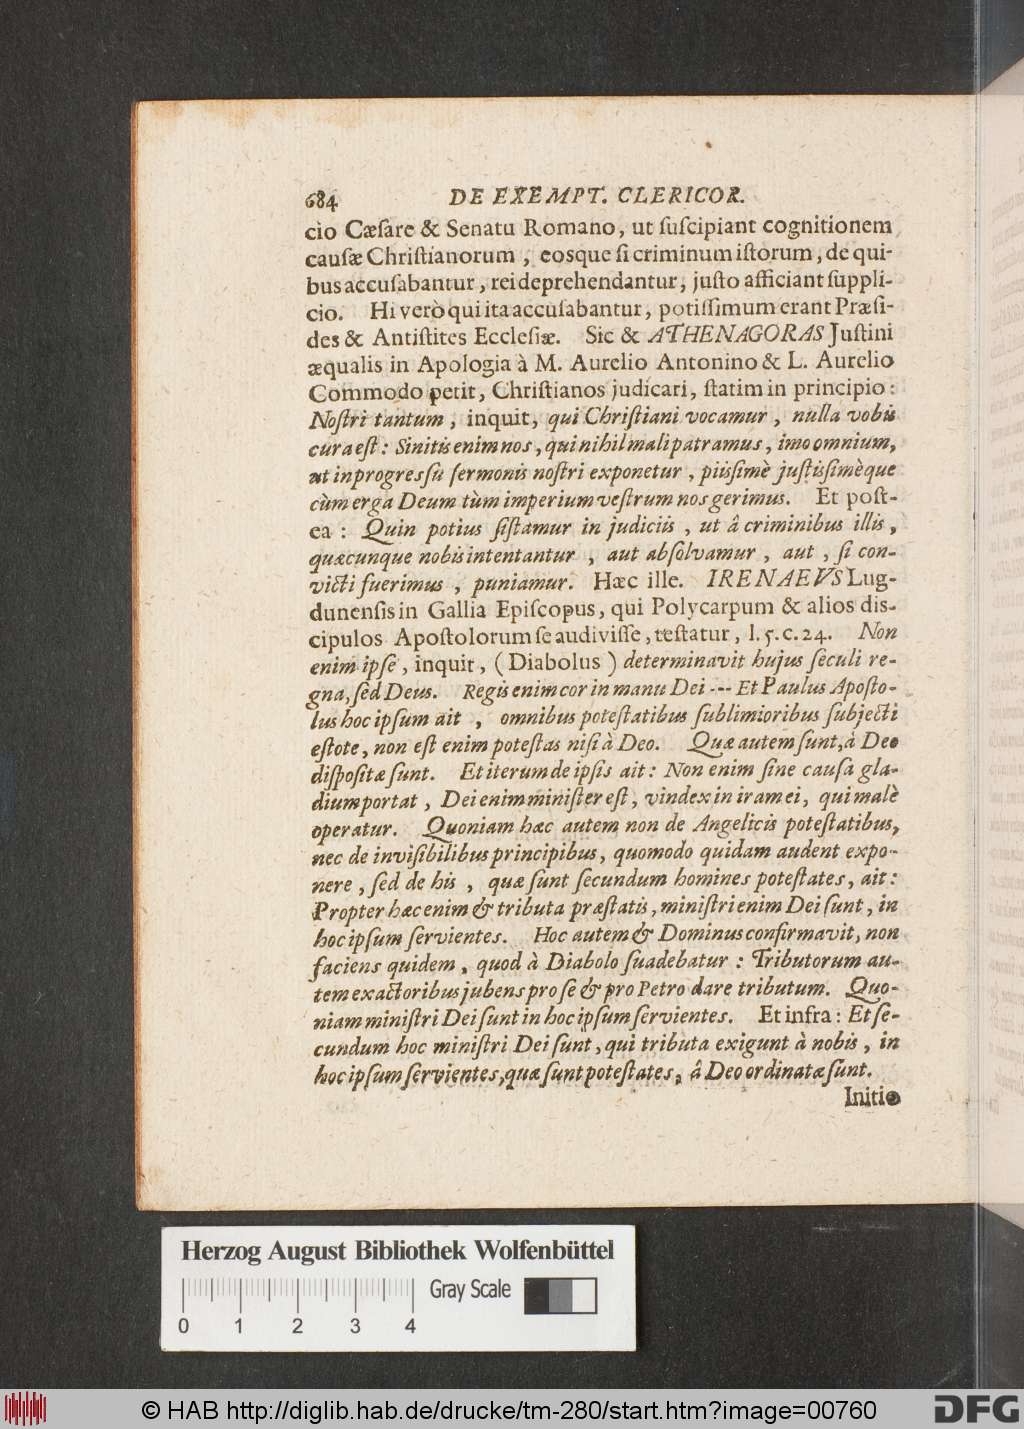 684 DE EXEMPT. CLERICOR.
cio Cæſare & Senatu Romano, ut ſuſcipiant cognitionem
cauſæ Chriſtianorum, eosque ſi criminum iſtorum, de qui-
bus accuſabantur, rei deprehendantur, juſto afficiant ſuppli-
cio. Hi verò qui ita accuſabantur, potiſſimum erant Præſi-
des & Antiſtites Eccleſiæ. Sic & ATHENAGORAS Juſtini
æqualis in Apologia à M. Aurelio Antonino & L. Aurelio
Commodo petit, Chriſtianos judicari, ſtatim in principio:
Noſtri tantum, inquit, qui Chriſtiani vocamur, nulla vobis
cura eſt: Sinitis enim nos, qui nihil mali patramus, imo omnium,
ut in progreſſu ſermonis noſtri exponetur, piiſſimè juſtiſſimèque
cùm erga Deum tùm imperium veſtrum nos gerimus. Et poſt-
ea: Quin potius ſiſtamur in judiciis, ut â criminibus illis,
quæcunque nobis intentantur, aut abſolvamur, aut, ſi con-
victi fuerimus, puniamur. Hæc ille. IRENAEVS Lug-
dunenſis in Gallia Epiſcopus, qui Polycarpum & alios diſ-
cipulos Apoſtolorum ſe audiviſſe, teſtatur, l. 5. c. 24. Non
enim ipſe, inquit, (Diabolus) determinavit hujus ſeculi re-
gna, ſed Deus. Regis enim cor in manu Dei --- Et Paulus Apoſto-
lus hoc ipſum ait, omnibus poteſtatibus ſublimioribus ſubjecti
eſtote, non eſt enim poteſtas niſi à Deo. Quæ autem ſunt, à Deo
diſpoſitæ ſunt. Et iterum de ipſis ait: Non enim ſine cauſa gla-
dium portat, Dei enim miniſter eſt, vindex in iram ei, qui malè
operatur. Quoniam hæc autem non de Angelicis poteſtatibus,
nec de inviſibilibus principibus, quomodo quidam audent expo-
nere, ſed de his, quæ ſunt ſecundum homines poteſtates, ait:
Propter hæc enim & tributa præſtatis, miniſtri enim Dei ſunt, in
hoc ipſum ſervientes. Hoc autem & Dominus confirmavit, non
faciens quidem, quod à Diabolo ſuadebatur: Tributorum au-
tem exactoribus jubens pro ſe & pro Petro dare tributum. Quo-
niam miniſtri Dei ſunt in hoc ipſum ſervientes. Et infra: Et ſe-
cundum hoc miniſtri Dei ſunt, qui tributa exigunt à nobis, in
hoc ipſum ſervientes, quæ ſunt poteſtates, â Deo ordinatæ ſunt.
Initio
Herzog August Bibliothek Wolfenbüttel
Gray Scale
0 1 2 3 4
© HAB http://diglib.hab.de/drucke/tm-280/start.htm?image=00760
DFG